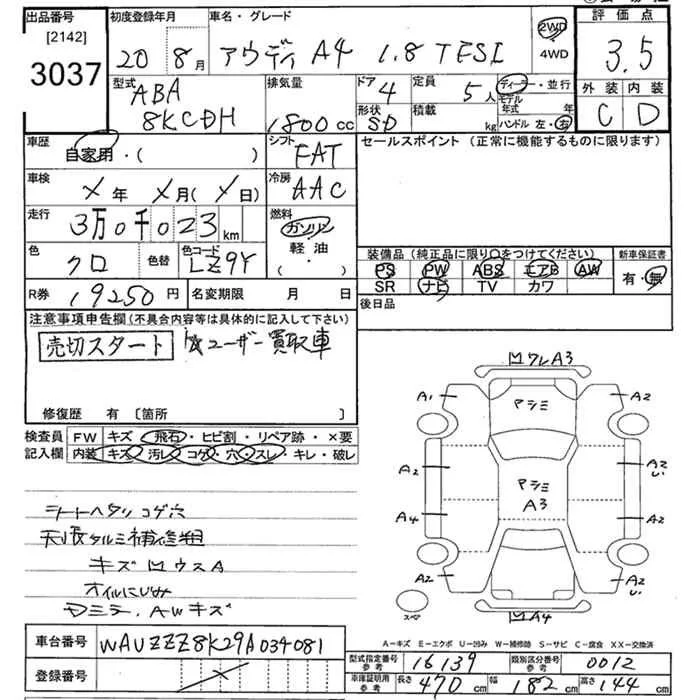 出品番号
[2142]
3037
初度登録年月
20 8月
車名・グレード
アウディ A4 1.8 TFSI
2WD
・
4WD
評価点
3.5
外装 内装
C D
型式
ABA
8KCDH
排気量
1800 cc
ドア 4
形状 SD
定員 5人
積載 kg
ディーラー・並行
モデル年式 年
ハンドル 左・右
車歴
自家用・( )
シフト
FAT
セールスポイント (正常に機能するものに限ります)
車検
X年 X月(X日)
冷房
AAC
走行
3万0千023km
燃料
ガソリン
軽・油
( ・ )
色
クロ
色替
色コード
LZ9Y
装備品 (純正品に限り○をつけてください)
PS PW ABS エアB AW
SR ナビ TV カワ
新車保証書
有・無
R券 19250円
名変期限 月 日
後日品
注意事項申告欄(不具合内容等は具体的に記入して下さい)
売切スタート ☆ユーザー買取車
修復歴 有 〔箇所 〕
検査員
記入欄
FW キズ・飛石・ヒビ割・リペア跡・×要
内装 キズ・汚レ・コゲ・穴・スレ・キレ・破レ
シートヘタリコゲ穴
天張タルミ補修粗
キズMウスA
オイルにじみ
Dミラ、AWキズ
MワレA3
A1
A2
マシミ
A2
A2
U1
マシミ
A3
A4
A2
A2
A2
U1
スペア
MA4
A-キズ E-エクボ U-凹み W-補修跡 S-サビ C-腐食 XX-交換済
車台番号 WAUZZZ8K29A034081
登録番号
型式指定番号 参考 16139
類別区分番号 参考 0012
車庫証明用 参考 長さ 470cm 幅 182cm 高さ 144cm